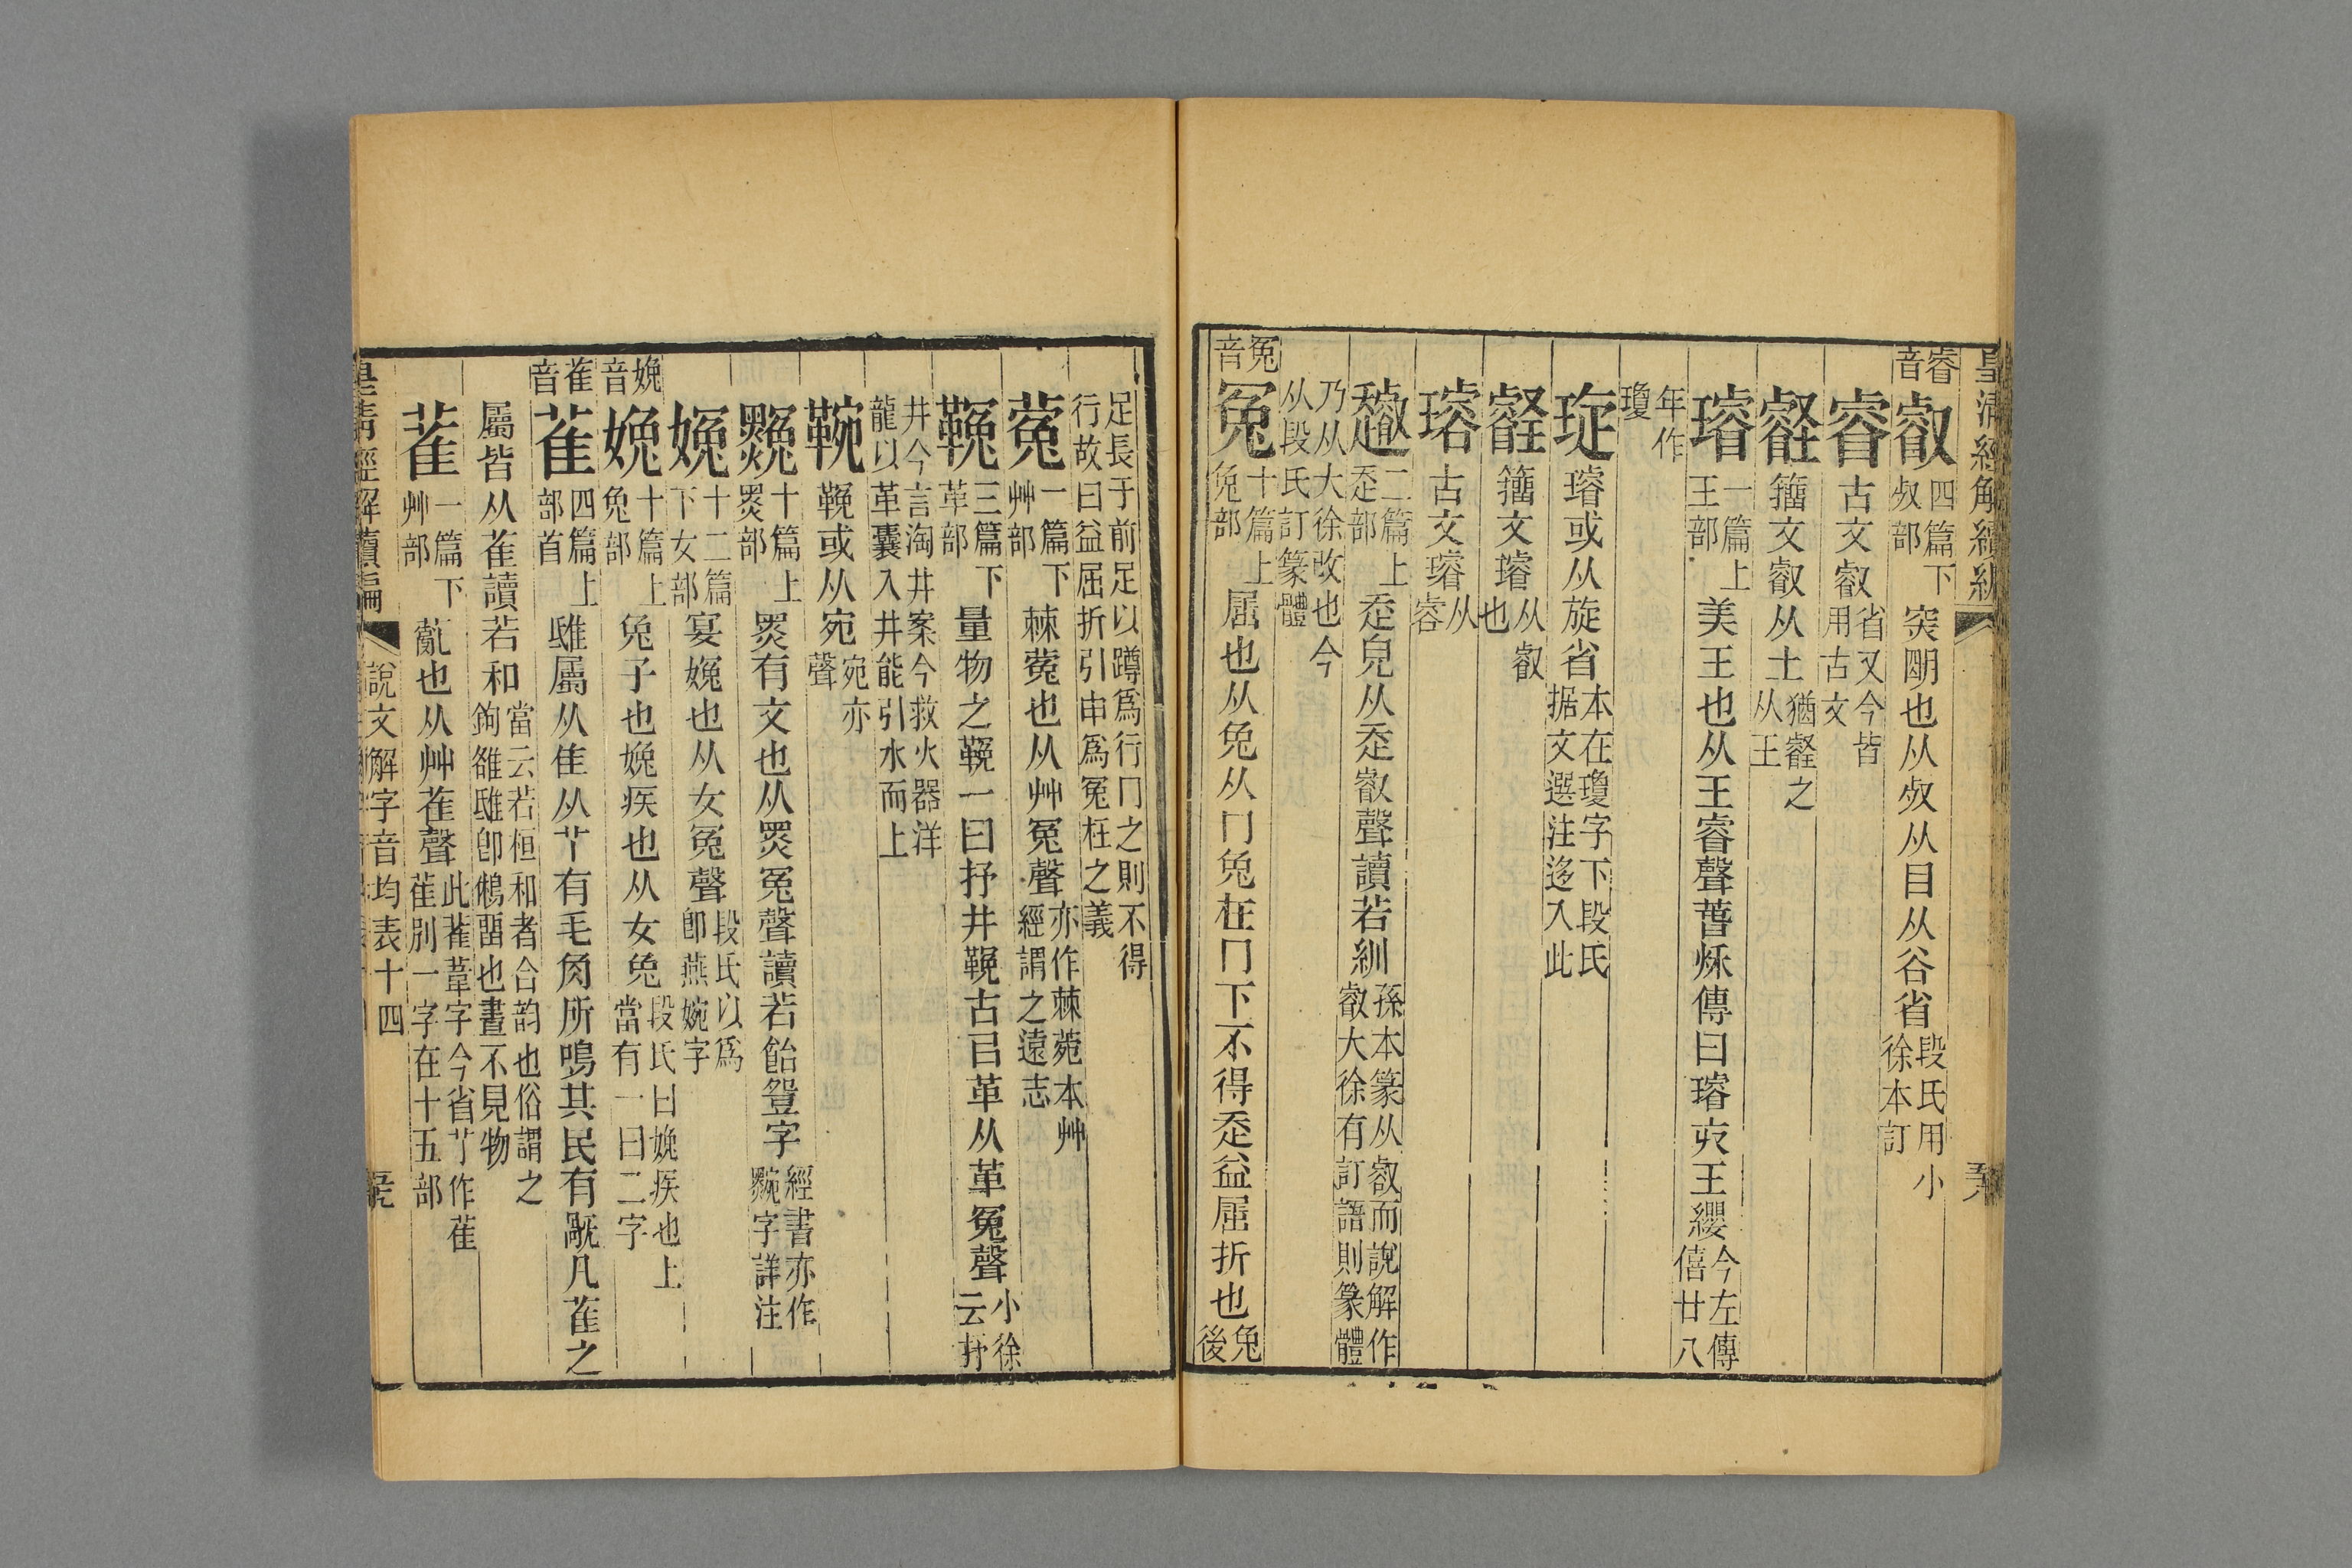 皇清經解續編
睿音 叡 四篇下𣦼部 突朙也从𣦼从目从谷省 段氏用小徐本訂
睿 古文叡 省又今皆用古文
壡 籒文叡从土 猶壡之从王
璿 一篇上王部 美王也从王睿聲萅秌傳曰璿㚑王纓 今左傳僖廿八
年作瓊
琁 璿或从旋省 本在瓊字下段氏据文選注迻入此
壡 籒文璿 从叡也
璿 古文璿 从睿
趨 二篇上走部 走皃从走叡聲讀若紃 孫本篆从叡而說解作叡大徐有訂語則篆體
乃从大徐改也今从段氏訂篆體
冤音 冤 十篇上兔部 屈也从兔从冂兔在冂下不得走益屈折也 兔後
足長于前足以蹲爲行冂之則不得行故曰益屈折引申爲冤枉之義
蒬 一篇下艸部 棘蒬也从艸冤聲 亦作棘菀本艸經謂之遠志
鞔 三篇下革部 量物之鞔一曰抒井鞔古㠯革从革冤聲 小徐云抒
井今言淘井案今救火器洋龍以革囊入井能引水而上
鞔 鞔或从宛 宛亦聲
黦 十篇上黑部 黑有文也从黑冤聲讀若飴䇺字 經書亦作黦字詳注
嬎 十二篇下女部 宴嬎也从女冤聲 段氏以爲卽燕婉字
娩音 娩 十篇上兔部 兔子也娩疾也从女兔 段氏曰娩疾也上當有一曰二字
萑音 萑 四篇上部首 鴟屬从隹从𦫳有毛角所鳴其民有旤凡萑之
屬皆从萑讀若和 當云若桓和者合韵也俗謂之鉤雒鴟卽鵂鶹也晝不見物
萑 一篇下艸部 薍也从艸萑聲 此萑葦字今省𦫳作萑萑別一字在十五部
皇清經解續編
說文解字音均表十四